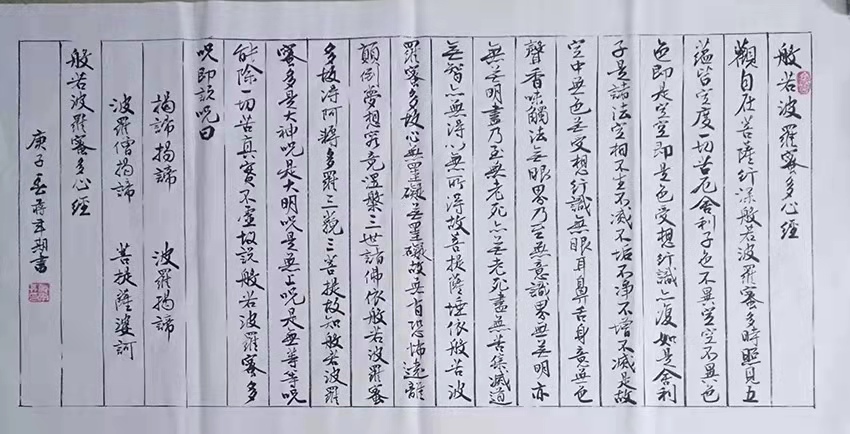 般若波羅蜜多心經
觀自在菩薩行深般若波羅蜜多時照見五
蘊皆空度一切苦厄舍利子色不異空空不異色
色即是空空即是色受想行識亦復如是舍利
子是諸法空相不生不滅不垢不净不增不减是故
空中無色無受想行識無眼耳鼻舌身意無色
聲香味觸法無眼界乃至無意識界無無明亦
無無明盡乃至無老死亦無老死盡無苦集滅道
無智亦無得以無所得故菩提薩埵依般若波
羅蜜多故心無罣礙無罣礙故無有恐怖遠離
顛倒夢想究竟涅槃三世諸佛依般若波羅蜜
多故得阿耨多羅三藐三菩提故知般若波羅
蜜多是大神咒是大明咒是無上咒是無等等咒
能除一切苦真實不虛故説般若波羅蜜多
咒即説咒曰
揭諦揭諦 波羅揭諦
波羅僧揭諦 菩提薩婆訶
般若波羅蜜多心經
庚子 蔣 書